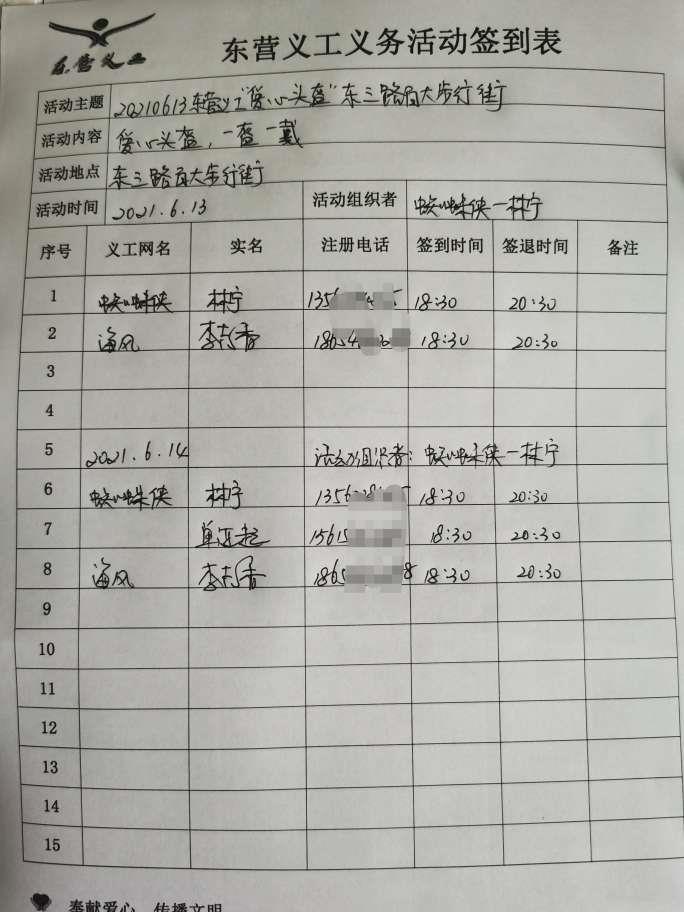 东营义工
东营义工义务活动签到表
活动主题 20210613东营义工"爱心头盔"东三路百大步行街
活动内容 爱心头盔，一盔一戴
活动地点 东三路百大步行街
活动时间 2021.6.13 活动组织者 蜘蛛侠一林宁
序号 义工网名 实名 注册电话 签到时间 签退时间 备注
1 蜘蛛侠 林宁 1356 18:30 20:30
2 海风 18:30 20:30
3
4
5 2021.6.14 活动组织者：蜘蛛侠一林宁
6 蜘蛛侠 林宁 1356 18:30 20:30
7 15615 18:30 20:30
8 海风 1865 8 18:30 20:30
9
10
11
12
13
14
15
奉献爱心 传播文明